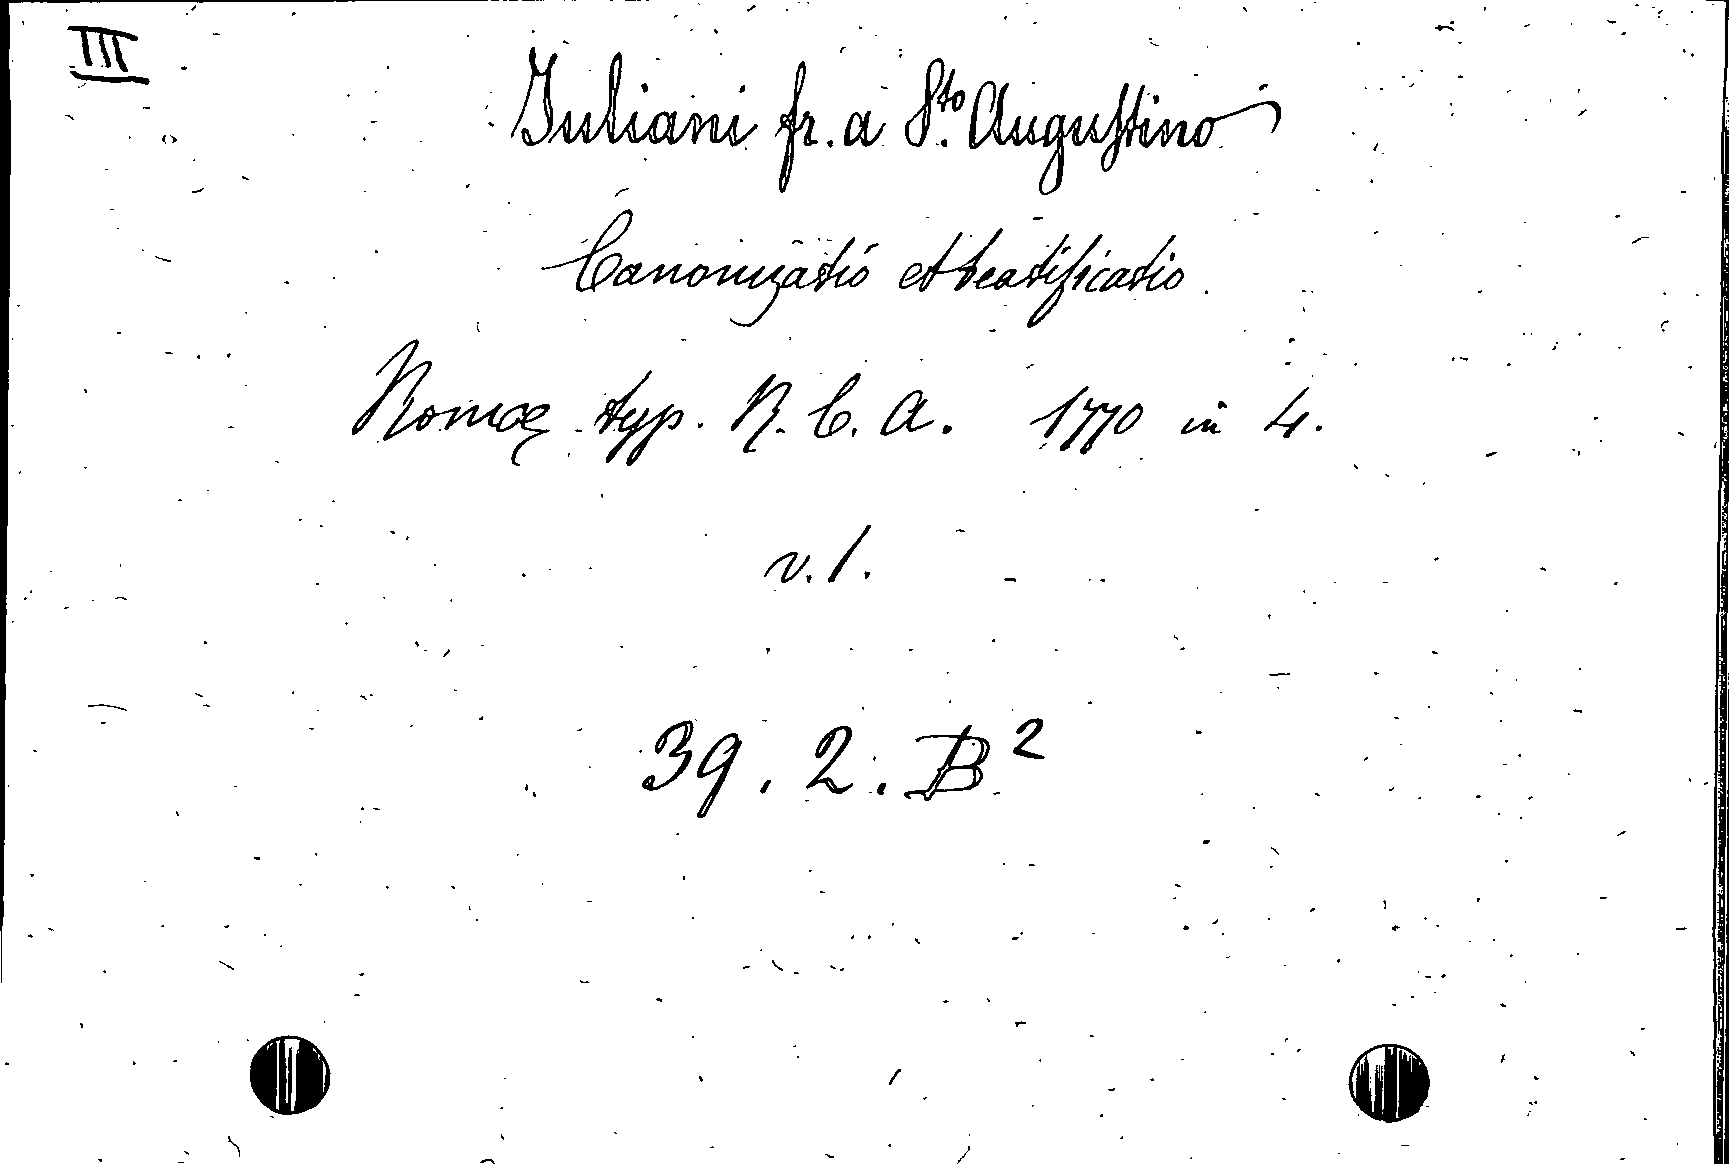 III
Iuliani fr. a Sto. Augustino
Canonizatio et beatificatio
Romæ typ. R. C. A. 1770 in 4.
v. 1.
39. 2. B²